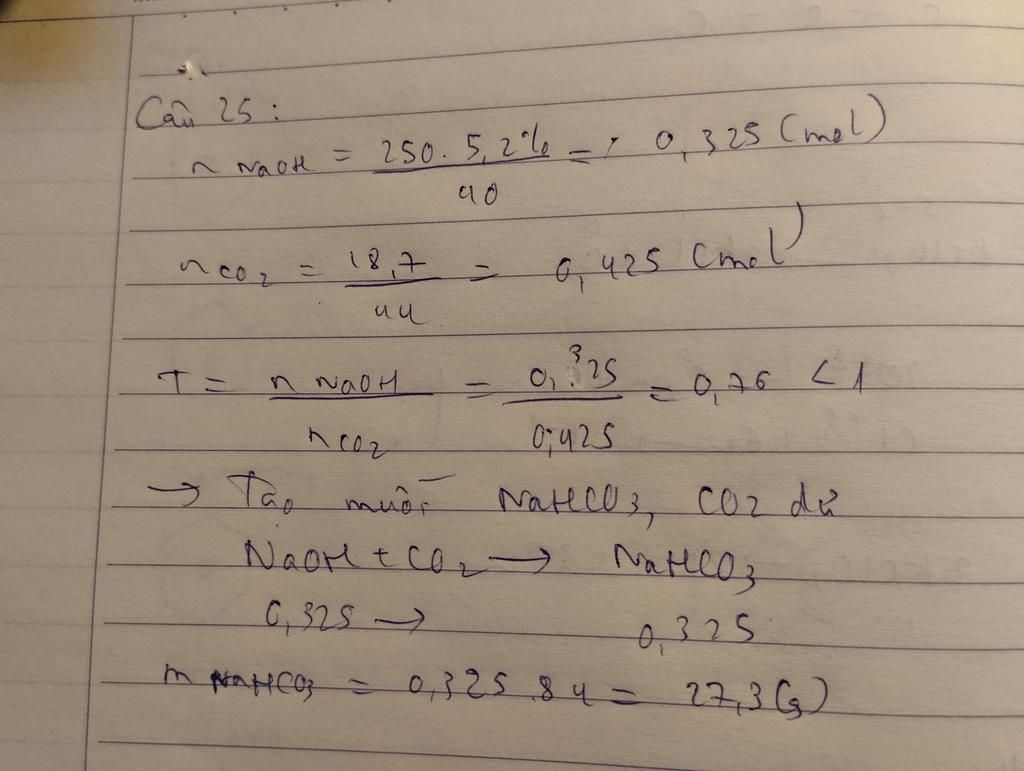 Câu 25 :
n NaOH = 250 . 5,2% / 40 = 0,325 (mol)
nCO2 = 18,7 / 44 = 0,425 (mol)
T = n NaOH / nCO2 = 0,325 / 0,425 = 0,76 < 1
→ Tạo muối NaHCO3, CO2 dư
NaOH + CO2 → NaHCO3
0,325 → 0,325
m NaHCO3 = 0,325 . 84 = 27,3 (g)